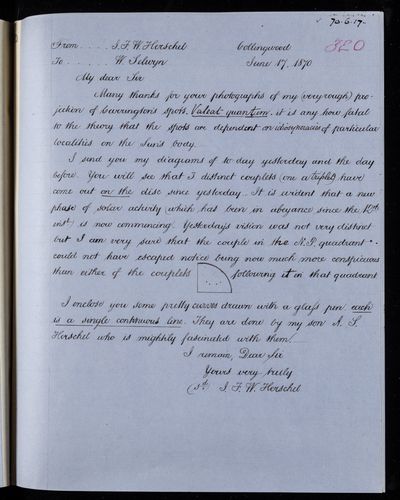 70.6.17.
320
From ..... J. F. W. Herschel Collingwood
To ...... W. Selwyn June 17, 1870
My dear Sir
Many thanks for your photographs of my (very rough) pro-
jection of Carrington's spots. Valeat quantum. it is any how fatal
to the theory that the spots are dependent on idiosyncrasies of particular
localities on the Sun's body.
I send you my diagrams of to day yesterday and the day
before. You will see that 3 distinct couplets (one a triplet) have
come out on the disc since yesterday. It is evident that a new
phase of solar activity (which has been in abeyance since the
inst) is now commencing. Yesterday's vision was not very distinct
but I am very sure that the couple in the N.P. quadrant
could not have escaped notice being now much more conspicuous
than either of the couplets following it in that quadrant
I enclose you some pretty curves drawn with a glass pen each
is a single continuous line. They are done by my son A. S.
Herschel who is mightily fascinated with them.
I remain, Dear Sir
Yours very truly
J. F. W. Herschel